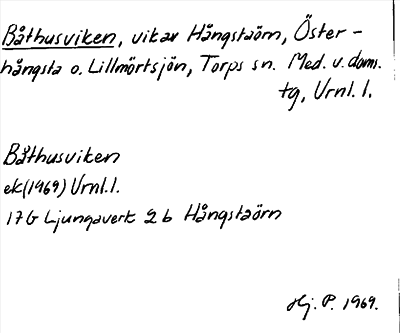 Båthusviken, vik av Hångstaörn, Öster-
hångsta o. Lillmörtsjön, Torps sn. Med. v. doms.
tg, Vrnl. l.
Båthusviken
ek (1969) Vrnl. l.
17G Ljungaverk 2 b Hångstaörn
Hj. P. 1969.